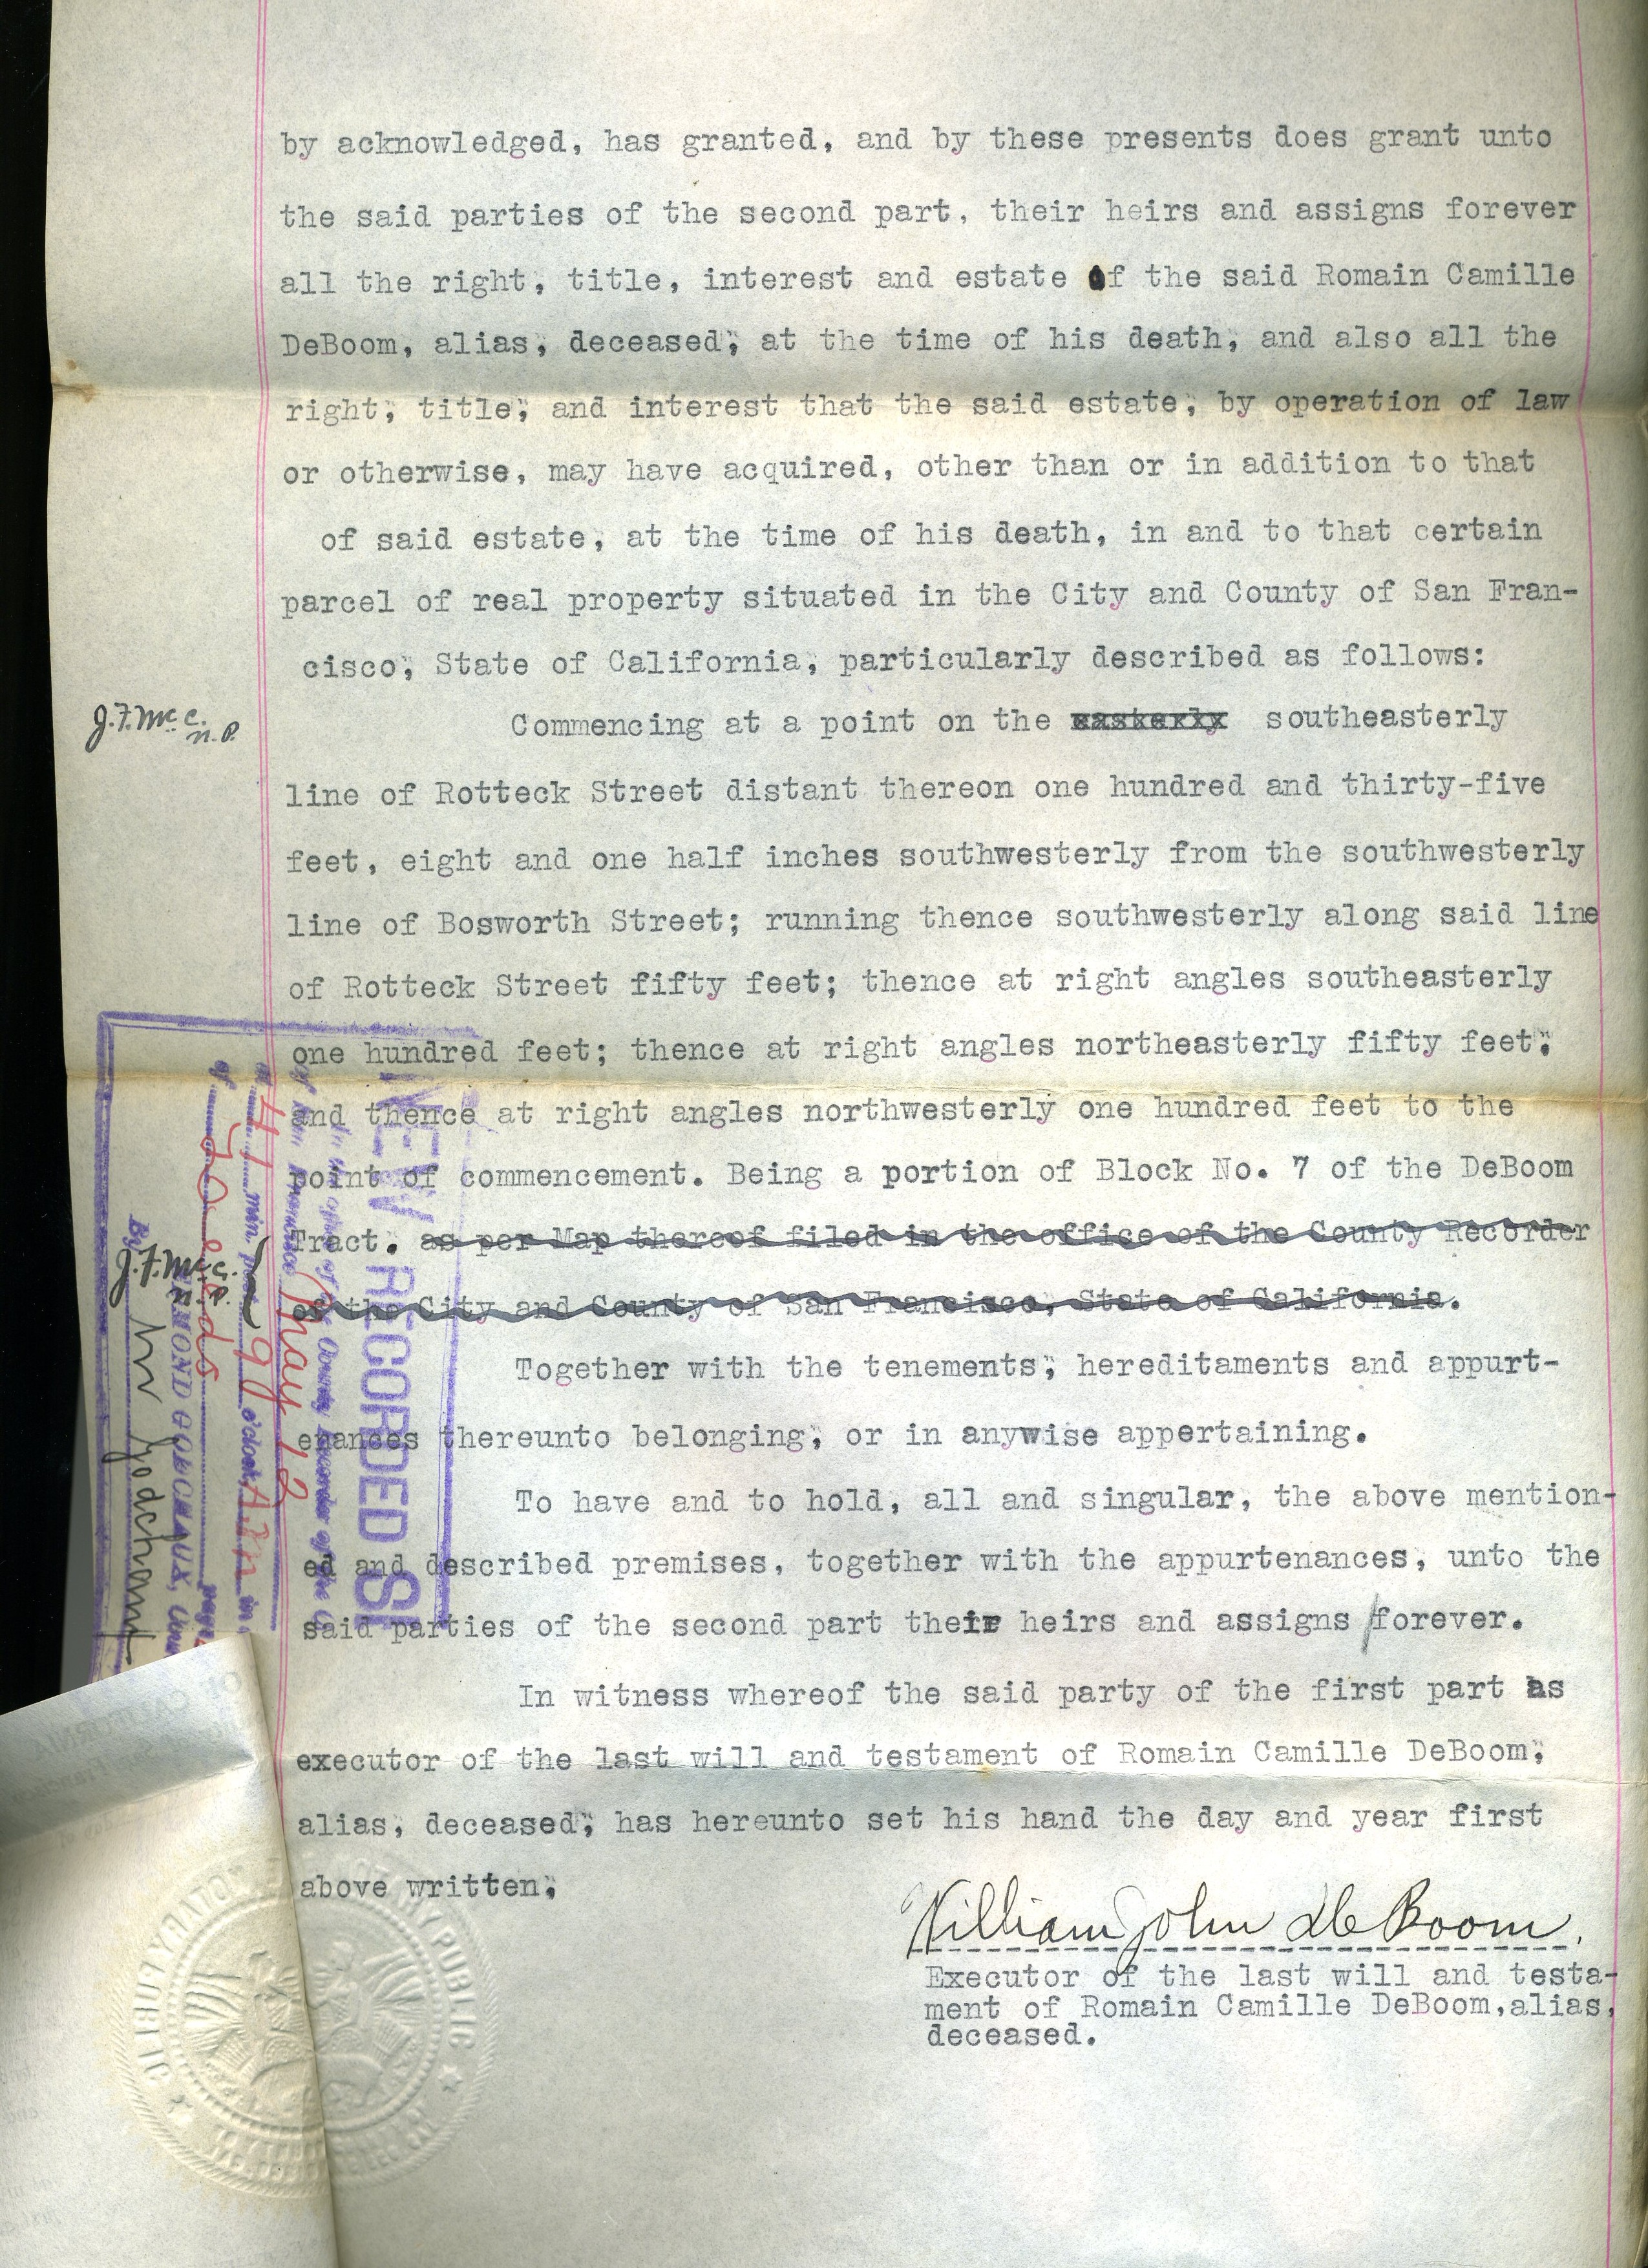 by acknowledged, has granted, and by these presents does grant unto
the said parties of the second part, their heirs and assigns forever
all the right, title, interest and estate of the said Romain Camille
DeBoom, alias, deceased, at the time of his death, and also all the
right, title, and interest that the said estate, by operation of law
or otherwise, may have acquired, other than or in addition to that
of said estate, at the time of his death, in and to that certain
parcel of real property situated in the City and County of San Fran-
cisco, State of California, particularly described as follows:
J.F. McC.
N.P.
Commencing at a point on the easterly southeasterly
line of Rotteck Street distant thereon one hundred and thirty-five
feet, eight and one half inches southwesterly from the southwesterly
line of Bosworth Street; running thence southwesterly along said line
of Rotteck Street fifty feet; thence at right angles southeasterly
one hundred feet; thence at right angles northeasterly fifty feet;
and thence at right angles northwesterly one hundred feet to the
point of commencement. Being a portion of Block No. 7 of the DeBoom
Tract. as per Map thereof filed in the office of the County Recorder
of the City and County of San Francisco, State of California.
J.F. McC.
N.P.
Together with the tenements, hereditaments and appurt-
enances thereunto belonging, or in anywise appertaining.
To have and to hold, all and singular, the above mention-
ed and described premises, together with the appurtenances, unto the
said parties of the second part their heirs and assigns forever.
In witness whereof the said party of the first part as
executor of the last will and testament of Romain Camille DeBoom,
alias, deceased, has hereunto set his hand the day and year first
above written.
William John DeBoom.
Executor of the last will and testa-
ment of Romain Camille DeBoom,alias,
deceased.
RECORDED
May 12
41 min. past 9 o'clock A.M. in
of Deeds
EDMOND GODCHAUX,
By
NOTARY PUBLIC